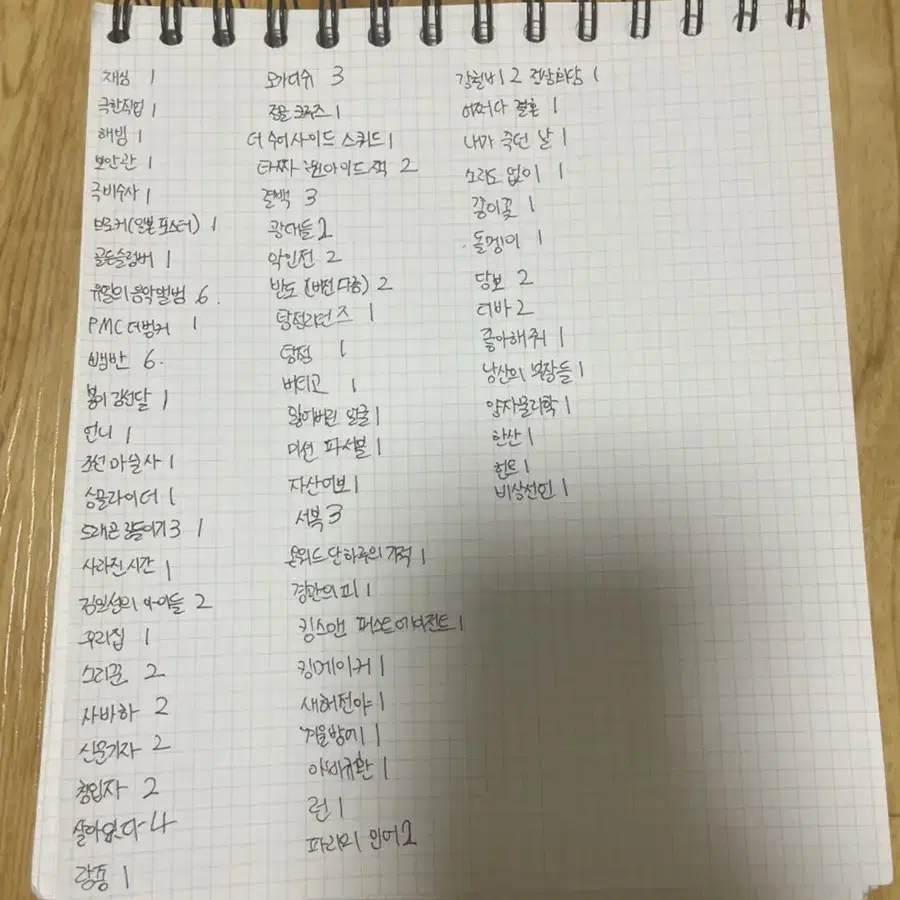 재심 1
극한직업 1
해빙 1
보안관 1
극비수사 1
브로커(일본포스터) 1
골든슬럼버 1
유열의 음악앨범 6.
PMC 더벙커 1
백반 6.
봉이 김선달 1
언니 1
조선 마술사 1
싱글라이더 1
드래곤 길들이기3 1
사라진 시간 1
김일성의 아이들 2
우리집 1
소리꾼 2
사바하 2
신문기자 2
침입자 2
살아있다 4
광풍 1
모가디슈 3
정글 크루즈 1
더 수어사이드 스쿼드 1
타짜 원아이드잭 2
결백 3
광대들 2
악인전 2
반도 (버전 다름) 2
탐정리턴즈 1
탐정 1
버티고 1
잃어버린 얼굴 1
미션 파서블 1
자산어보 1
서복 3
온워드 단 하루의 기적 1
경관의 피 1
킹스맨 퍼스트 에이전트 1
킹메이커 1
새해전야 1
겨울밤에 1
아버귀환 1
런 1
파리의 인어 2
강철비 1 2 정상회담 1
어쩌다 결혼 1
내가 죽던 날 1
소리도 없이 1
종이꽃 1
돌멩이 1
담보 2
디바 2
좋아해줘 1
남산의 부장들 1
양자물리학 1
한산 1
헌트 1
비상선언 1